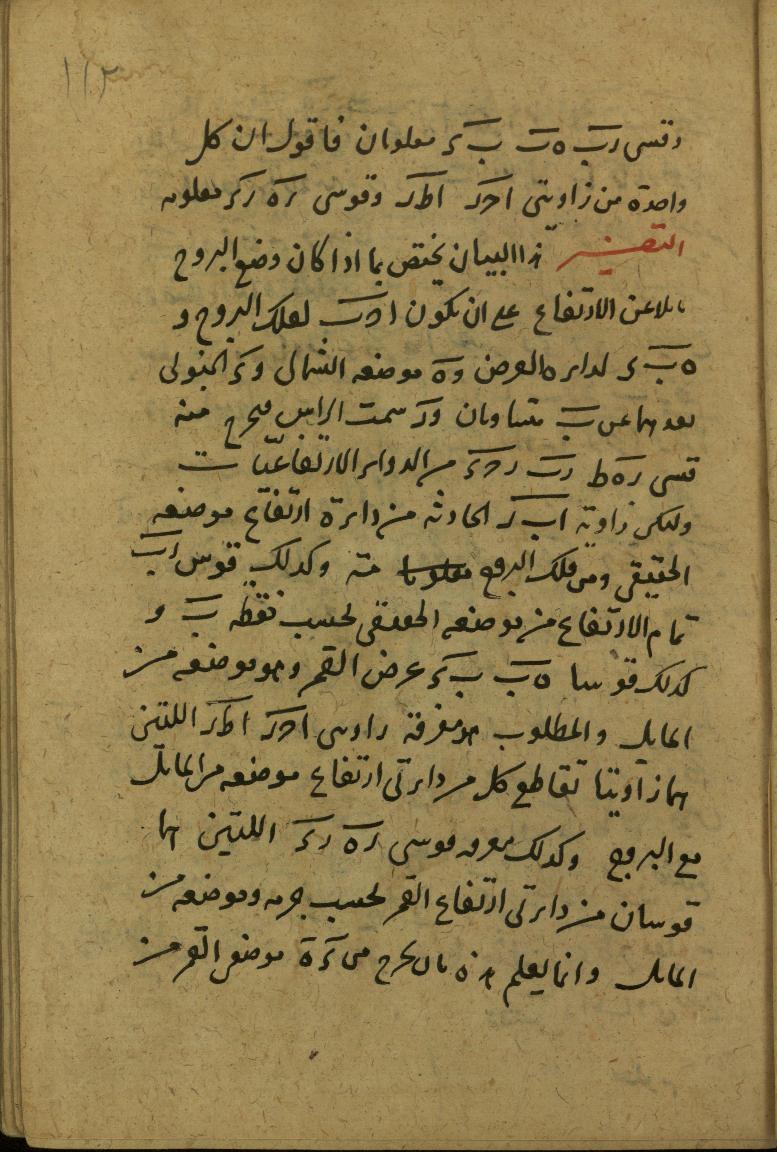 ١١٢
وقسى رب ه ب ب ك معلومان فاقول ان كل
واحدة من زاويتى احر اطر وقوسى ره رك معلومه
التفسير هذا البيان يختص بما اذا كان وضع البروج
مايلا عن الارتفاع على ان يكون احب لفلك البروج و
ه ب ك لدايره العرض وه موضعه الشمالى وك الجنوبى
بعدهما عن ب متساويان ور سمت الراس فيخرج منه
قسى ره ط رب رح ك من الدواير الارتفاعيات
ولتكن زاوية اب ر الحادثه من دايرة ارتفاع موضعه
الحقيقى ومن فلك البروج معلوما منه وكذلك قوس رب
تمام الارتفاع من موضعه الحقيقى بحسب نقطه ب و
كذلك قوسا ه ب ب ك عرض القمر وهو موضعه من
المايل والمطلوب هو معرفة زاويتى احر اطر اللتين
هما زاويتا تقاطع كل من دايرتى ارتفاع موضعه من المايل
مع البروج وكذلك معرفه قوسى ره رك اللتين هما
قوسان من دايرتى ارتفاع القمر بحسب جرمه وموضعه من
المايل وانما يعلم هذه بان يخرج من ك ه موضعى القمر من